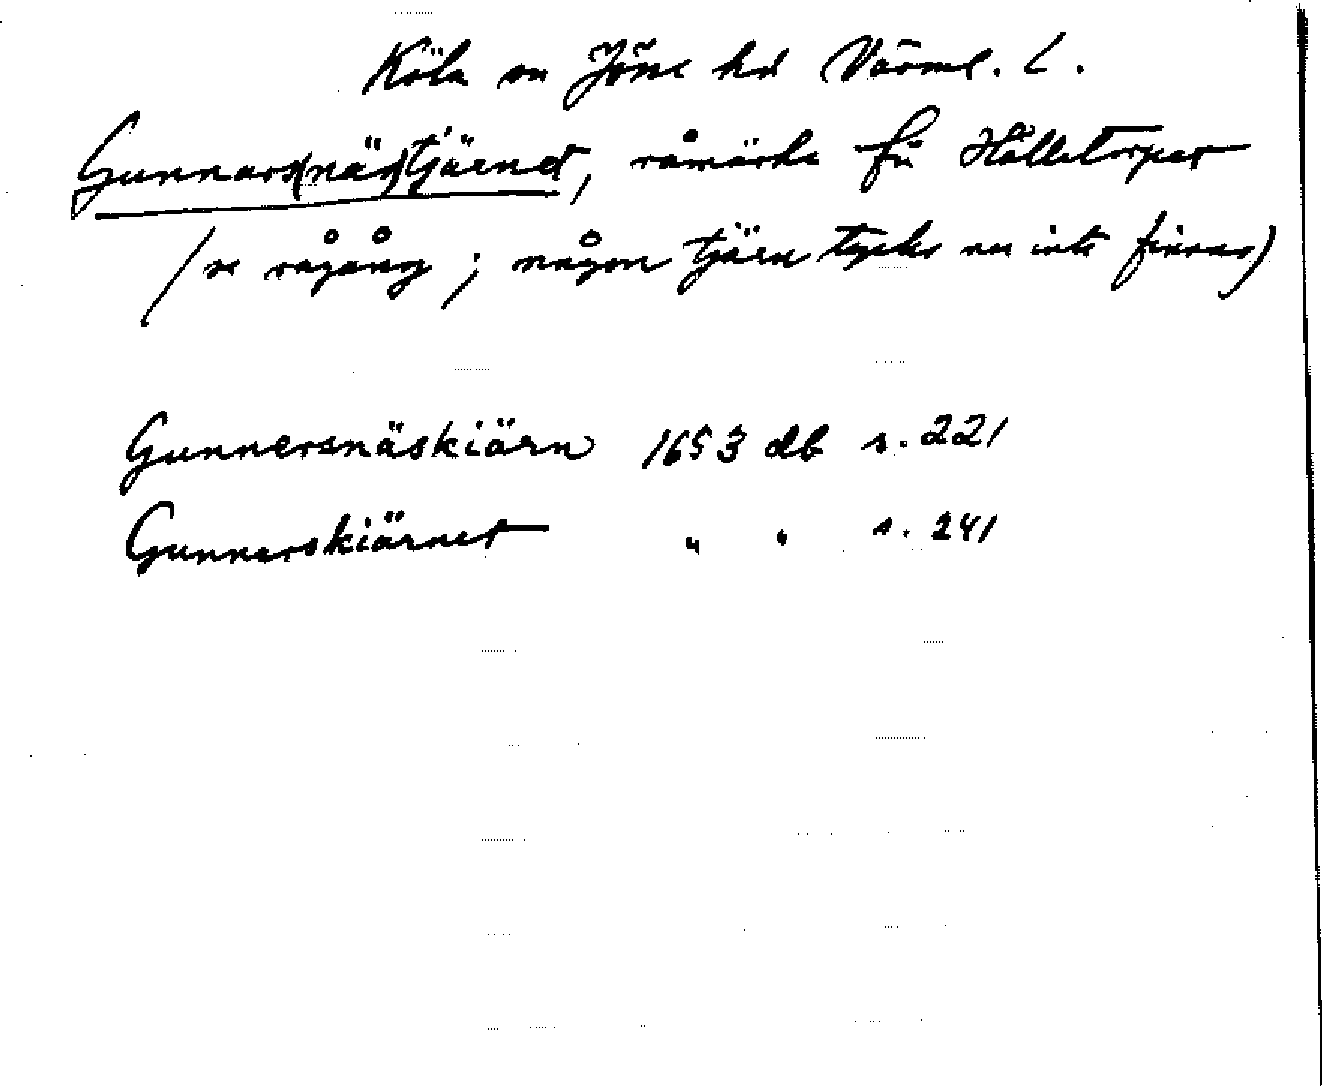 Köla sn Jösse hd Värml. L.
Gunnars(näs)tjärnet, råmärke för Hälletorpet
(se rågång; någon tjärn tycks nu inte finnas)
Gunnersnäskiärn 1653 db s. 221
Gunnerskiärnet " " s. 241